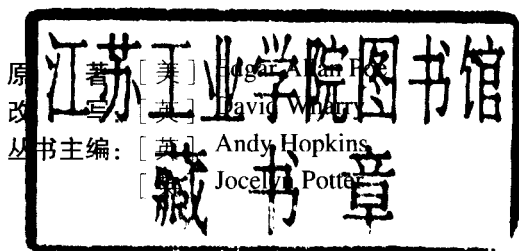 江苏工业学院图书馆
藏书章
原 著：[美] Edgar Allan Poe
改 写：[英] David Wharry
丛书主编：[英] Andy Hopkins
[英] Jocelyn Potter